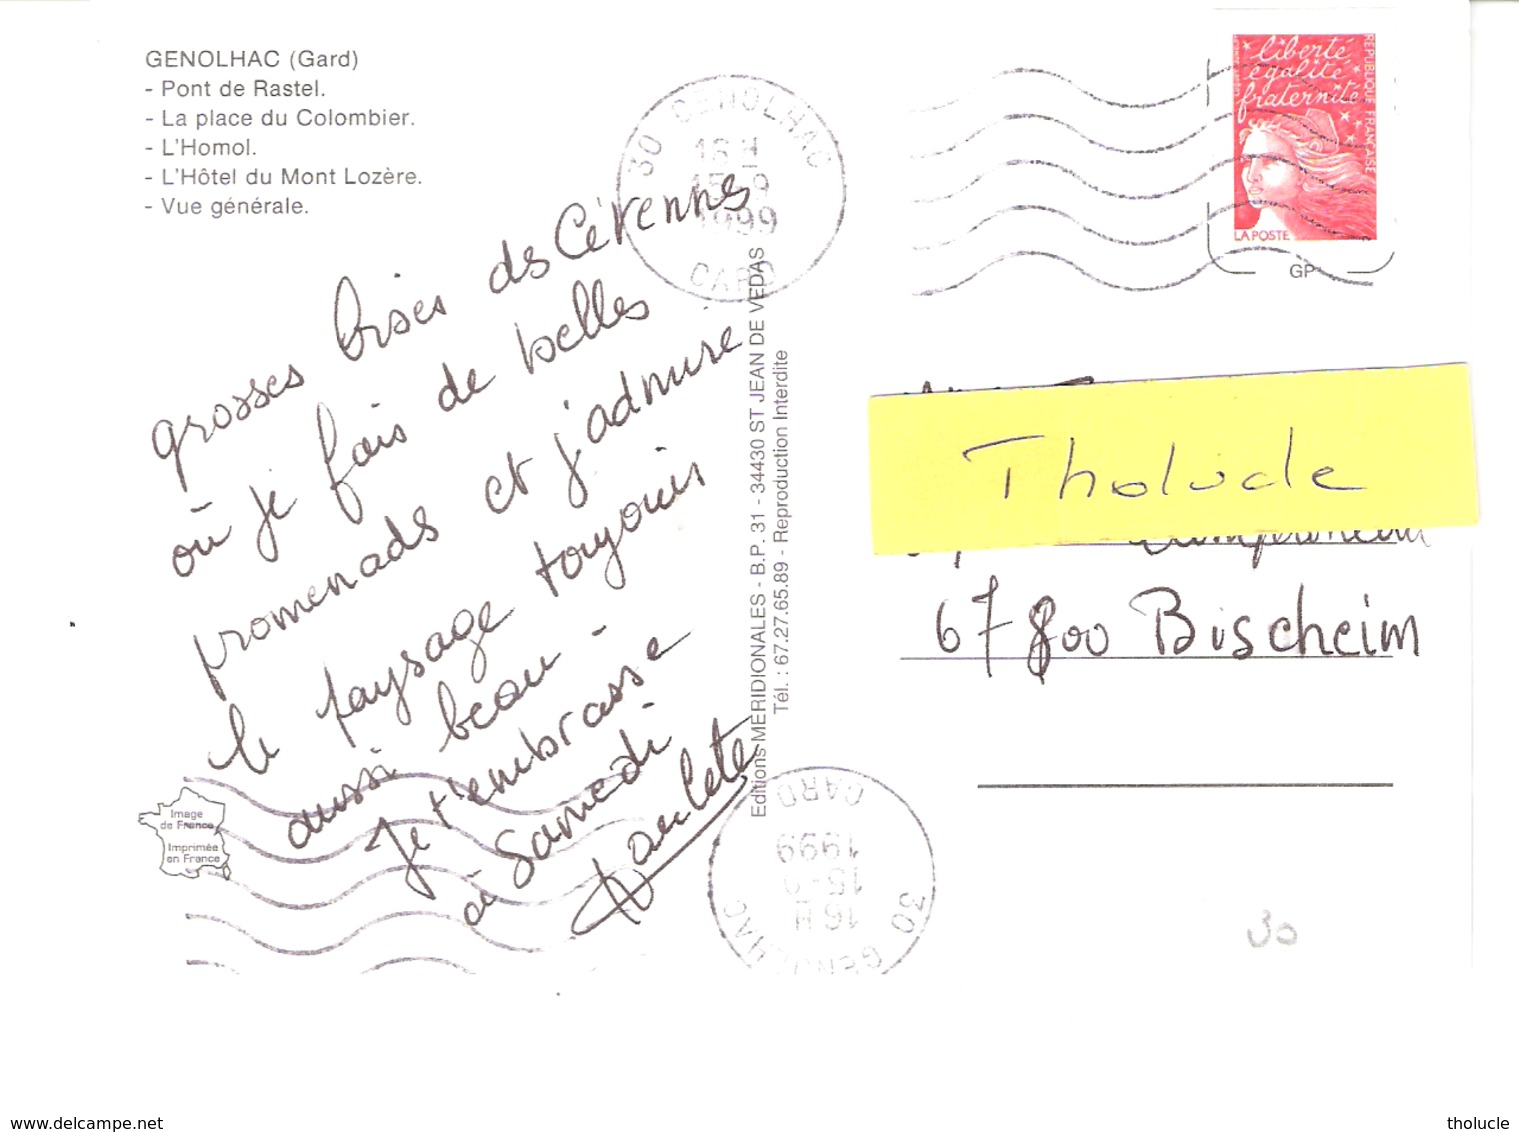 GENOLHAC (Gard)
- Pont de Rastel.
- La place du Colombier.
- L'Homol.
- L'Hôtel du Mont Lozère.
- Vue générale.
30 GENOLHAC
16 H
15-9
1999
GARD
liberté
égalité
fraternité
REPUBLIQUE FRANÇAISE
LA POSTE
GP
grosses bises des Cévennes
où je fais de belles
promenades et j'admire
le paysage toujours
aussi beau -
Je t'embrasse
à Samedi
Paulete
Editions MERIDIONALES - B.P. 31 - 34430 ST JEAN DE VEDAS
Tél. : 67.27.65.89 - Reproduction Interdite
Tholucle
67 800 Bischeim
Image
de France
Imprimée
en France
30 GENOLHAC
16 H
15-9
1999
GARD
30
www.delcampe.net
tholucle